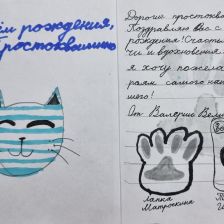 ём рождения,
ростоквашино
Дорогие простоква
Поздравляю Вас с
рождения! Счастья
чи и вдохновения
я хочу пожела
рам самого на
шего!
От: Валерии Вели
Лапка
Матроскина